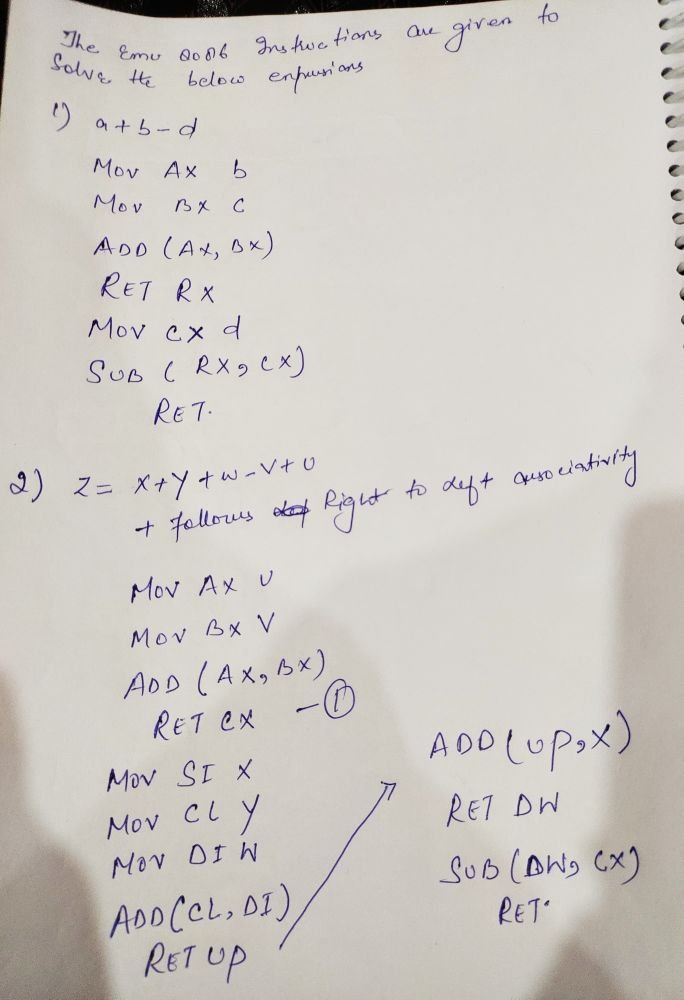 The Emu 8086 Instructions are given to
Solve the below enpursians
1) a+b-d
Mov Ax b
Mov Bx c
ADD (Ax, Bx)
RET RX
Mov cx d
SUB ( RX, CX)
RET.
2) Z= X+Y+W-V+U
+ follows Right to left associativity
Mov Ax U
Mov Bx V
ADD (Ax, Bx)
RET CX - ①
Mov SI X
Mov CL Y
Mov DI W
ADD(CL, DI)
RET UP
ADD(UP, X)
RET DW
SUB (DW, CX)
RET.